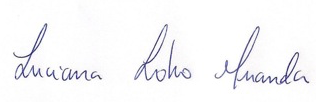 Luciana Lobo Miranda